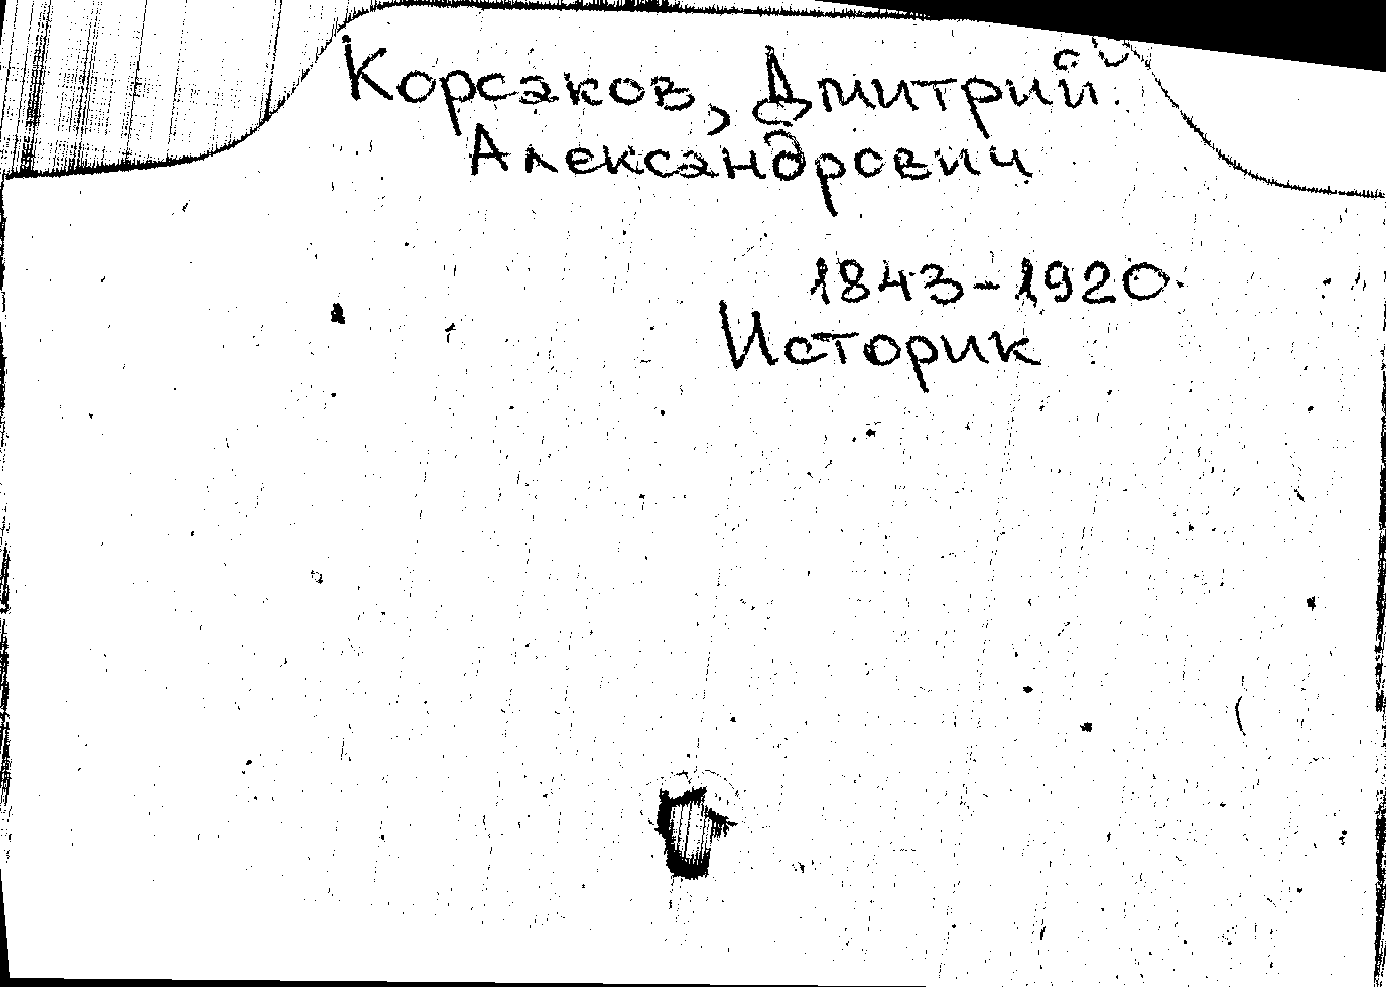 Корсаков, Дмитрий
Александрович
1843-1920
Историк